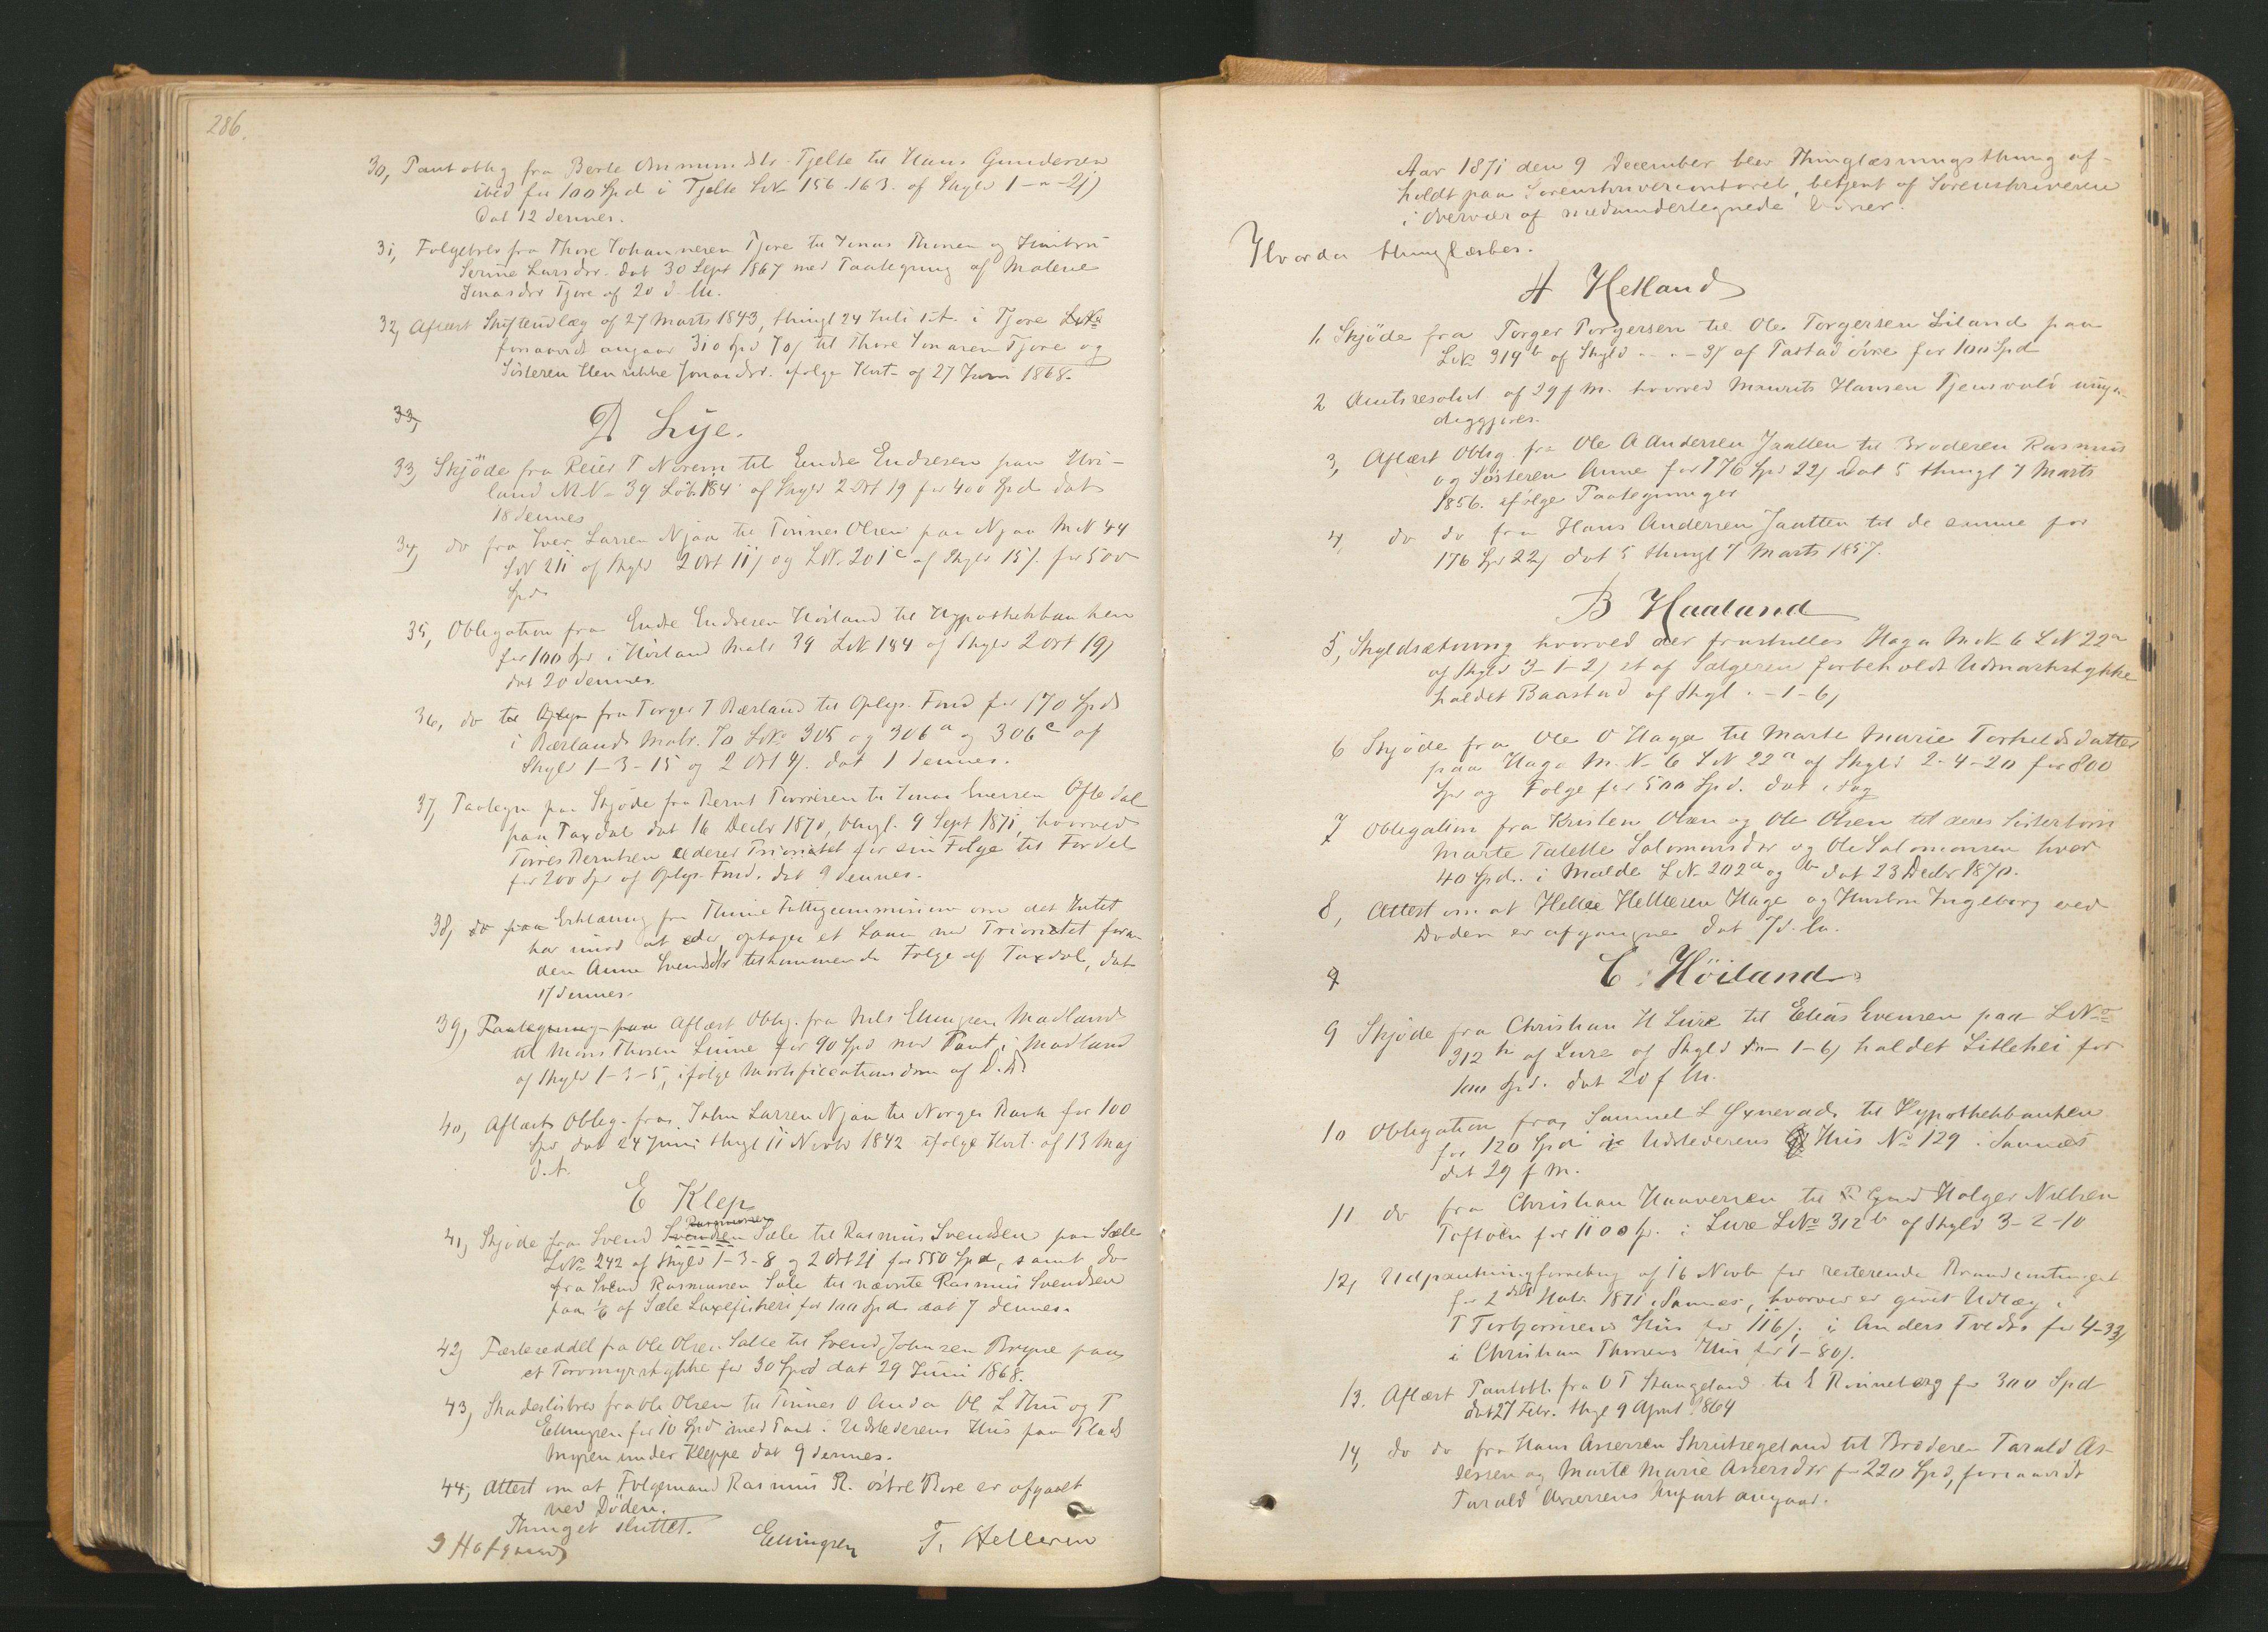 286.
30, Pantoblig fra Berte Asmundsdr. Tjelte til Hans Gundersen
ibid for 100 Spd i Tjelte LNo 156.163. af Skyld 1-"-21)
Dat 12 dennes.
31, Folgebrev fra Thore Johannesen Tjore til Jonas Thorsen og Hustru
Serine Larsdr. dat 30 Sept 1867 med Paategning af Malene
Jonasdr Tjore af 20 d. M.
32, Aflæst Skifteudlæg af 27 Marts 1843, thingl 24 Juli s. A. i Tjore LNo
forsaavidt angaar 310 Spd 70/ til Thore Jonasen Tjore og
Søsteren Henrikke Jonasdr. ifølge Kvit. af 27 Juni 1868.
33,
D Lye.
33, Skjöde fra Reier T Norem til Endre Endresen paa Höi-
land MNo 39 Löb 184 af Skyld 2 Ort 19 for 400 Spd dat
18 dennes
34, do fra Iver Larsen Njaa til Tönnes Olsen paa Njaa MN 44
LN 211 af Skyld 2 Ort 11/ og LN. 201c af Skyld 15/. for 500
Spd.
35, Obligation fra Endre Endresen Höiland til Hypothekbanken
for 100 Spd i Höiland Matr 39 LN 184 af Skyld 2 Ort 19/
dat 20 dennes.
36, do til Oplys fra Torger T Bærland til Oplys. Fond for 170 Spd
i Bærland Matr. 70 LNo 305 og 306a og 306c af
Skyld 1-3-15 og 2 Ort 4/. dat 1 dennes.
37, Paategn paa Skjöde fra Bernt Torresen til Jonas Evensen Ofte dal
paa Taxdal dat 16 Decbr 1870, thingl. 9 Sept 1871, hvorved
Torres Berntsen cederer Prioritet for sin Folge til Fordel
for 200 Spd af Oplys. Fond. dat 9 dennes.
38, do paa Erklæring fra Thime Fattigcommission om det Intet
har imod at der optages et Laan med Prioritet foran
den Anne Svendsdr tilkommende Folge af Taxdal, dat
17 dennes.
39, Paategning paa Aflæst Oblig. fra Nils Ellingsen Madland
til Mons Thorsen Lunne for 90 Spd med Pant i Madland
af Skyld 1-3-5, ifølge Mortificationsdom af D.D.
40, Aflæst Oblig. fra John Larsen Njaa til Norges Bank for 100
Spd dat 24 Juni thingl 11 Novbr 1842 ifølge Kvit. af 13 Maj
d. A.
E Klep
41, Skjöde fra Svend Svendsen Rasmussen Sæle til Rasmus Svendsen paa Sæle
LNo 242 af Skyld 1-3-8 og 2 Ort 21 for 550 Spd, samt do
fra Svend Rasmussen Sæle til nævnte Rasmus Svendsen
paa 1/6 af Sæle Laxefiskeri for 100 Spd dat 7 dennes.
42, Fæsteseddel fra Ole Olsen Salte til Svend Johnsen Bryne paa
et Torvmyrstykke for 30 Spd dat 29 Juni 1868.
43, Skadeslösbrev fra Ole Olsen til Tönnes O Anda Ole L Thu og T
Ellingsen for 10 Spd med Pant i Udstederens Hus paa Plads
Myren under Kleppe dat 9 dennes.
44, Attest om at Folgemand Rasmus R. östre Bore er afgaaet
ved Döden.
Thinget sluttet.
Hofgaard Ellingsen T. Helleren
Aar 1871 den 9 December blev Thinglæsningsthing af-
holdt paa Sorenskrivercontoret, betjent af Sorenskriveren
i Overvær af medundertegnede Vidner.
Hvorda thinglæstes.
A Hetland
1. Skjöde fra Torger Torgersen til Ole Torgersen Liland paa
LNo 319b af Skyld "-"-3/ af Tastad övre for 100 Spd
2 Amtsresolut af 29 f M. hvorved Mauritz Hansen Tjensvold umyn-
diggjøres.
3, Aflæst Oblig. fra Ole A Andersen Jaatten til Broderen Rasmus
og Søsteren Anne for 176 Spd 22/ Dat 5 thingl 7 Marts
1856. ifølge Paategninger
4, do do fra Hans Andersen Jaatten til de samme for
176 Spd 22/ dat 5 thingl 7 Marts 1857.
B Haaland
5, Skyldsætning hvorved der fraskilles Haga MN 6 LN 22a
af Skyld 3-1-2/ et af Sælgeren forbeholdt Udmarkstykke
kaldet Baastad af Skyl. "-1-6/
6 Skjöde fra Ole O Haga til Marte Marie Torkeldsdatter
paa Haga M.No 6 LN 22a af Skyld 2-4-20 for 800
Spd og Folge for 500 Spd. dat i Dag
7 Obligation fra Kristen Olsen og Ole Olsen til deres Sösterbörn
Marte Talette Salomonsdr og Ole Salomonsen hver
40 Spd. i Malde LN 202a og b dat 23 Decbr 1870.
8, Attest om at Helle Hellesen Haga og Hustru Ingeborg ved
Døden er afgangne dat 7 d. M.
9
C. Höiland
9 Skjöde fra Christian H Lure til Elias Evensen paa LNo
312h af Lure af Skyld "-1-6/ kaldet Litlehei for
100 Spd. dat 20 f M.
10 Obligation fra Samuel L Oxnevad til Hypothekbanken
for 120 Spd i Udstederens Hus No 129 i Sannæs
dat 29 f M.
11 do fra Christian Haaversen til Holger Nielsen
Toftöen for 1100 Sp. i Lure LNo 312b af Skyld 3-2-10
12, Udpantningsforretning af 16 Novb for resterende Brandcontingent
for 2det Halv. 1871 i Sannæs, hvorved er givet Udlæg i
T Torbjørnsens Hus for 116/. i Anders Tvedts for 4-33/
i Christian Thorsens Hus for 1-80/.
13. Aflæst Pantobl. fra O T Stangeland til E Rönneberg for 300 Spd
dat 27 Febr. thgl 9 April 1864
14, do do fra Hans Assersen Skrudsegeland til Broderen Tarald As-
sersen og Marte Marie Assersdr for 220 Spd, forsaavidt
Tarald Assersens Anpart angaar.